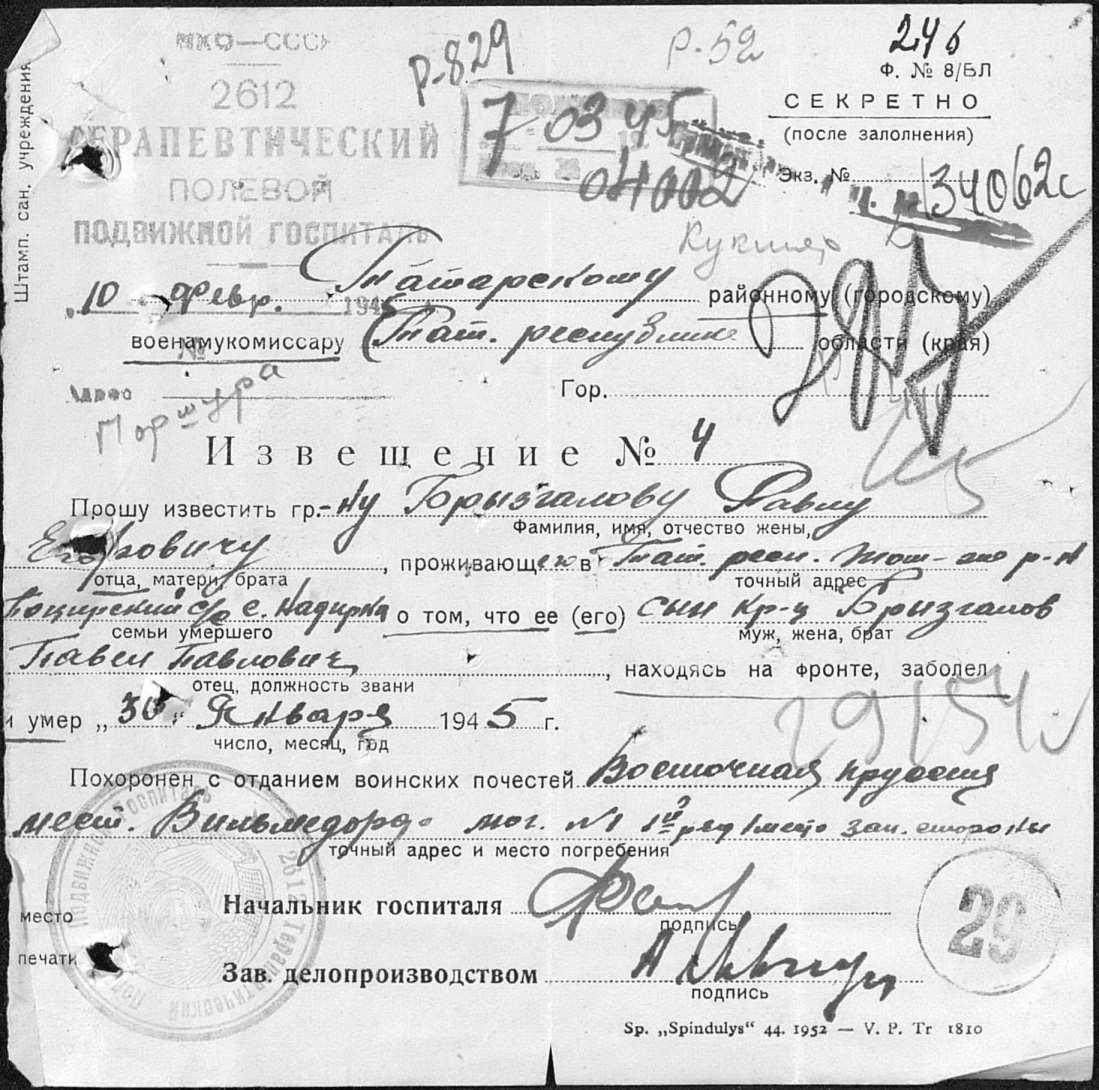 НКО—СССР
2612
ТЕРАПЕВТИЧЕСКИЙ
ПОЛЕВОЙ
ПОДВИЖНОЙ ГОСПИТАЛЬ
Штамп. сан. учреждения
Р-829
Р-52
246
Ф. № 8/БЛ
СЕКРЕТНО
(после залолнения)
Экз. №
7 03 45
04002
34062с
„10 Февр. 1945
Татарскому районному (городскому)
военамукомиссару Тат. республике области (края)
№
Адрес
Поршура
Гор.
Извещение № 4
Прошу известить гр.-ну Брызгалову Павлу
Фамилия, имя, отчество жены,
Егоровичу, проживающею в Тат. респ.
отца, матери, брата точный адрес
с/с с. о том, что ее (его) сын кр-ц Брызгалов
семьи умершего муж, жена, брат
Павел Павлович, находясь на фронте, заболел
отец, должность звани
29154
и умер „30„ Января 1945 г.
число, месяц, год
Похоронен с отданием воинских почестей Восточная Пруссия
мест. Вильмсдорф мог. №1 1й ряд 1 место зап. стороны
точный адрес и место погребения
Начальник госпиталя
подпись
место
печати
29
Зав. делопроизводством
подпись
Sp. „Spindulys“ 44. 1952 — V. P. Tr 1810